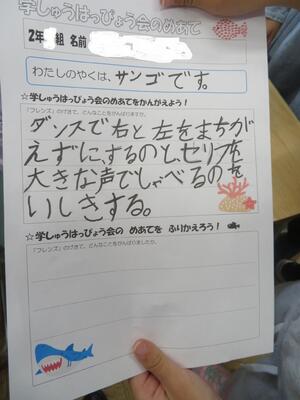 学しゅうはっぴょう会のめあて
2年 組 名前
わたしのやくは、サンゴです。
☆学しゅうはっぴょう会のめあてをかんがえよう!
「フレンズ」のげきで、どんなことをがんばりますか。
ダンスで右と左をまちが
えずに、するのと、セリフを
大きな声でしゃべるのを
いしきする。
☆学しゅうはっぴょう会の めあてを ふりかえろう!
「フレンズ」のげきで、どんなことをがんばりましたか。